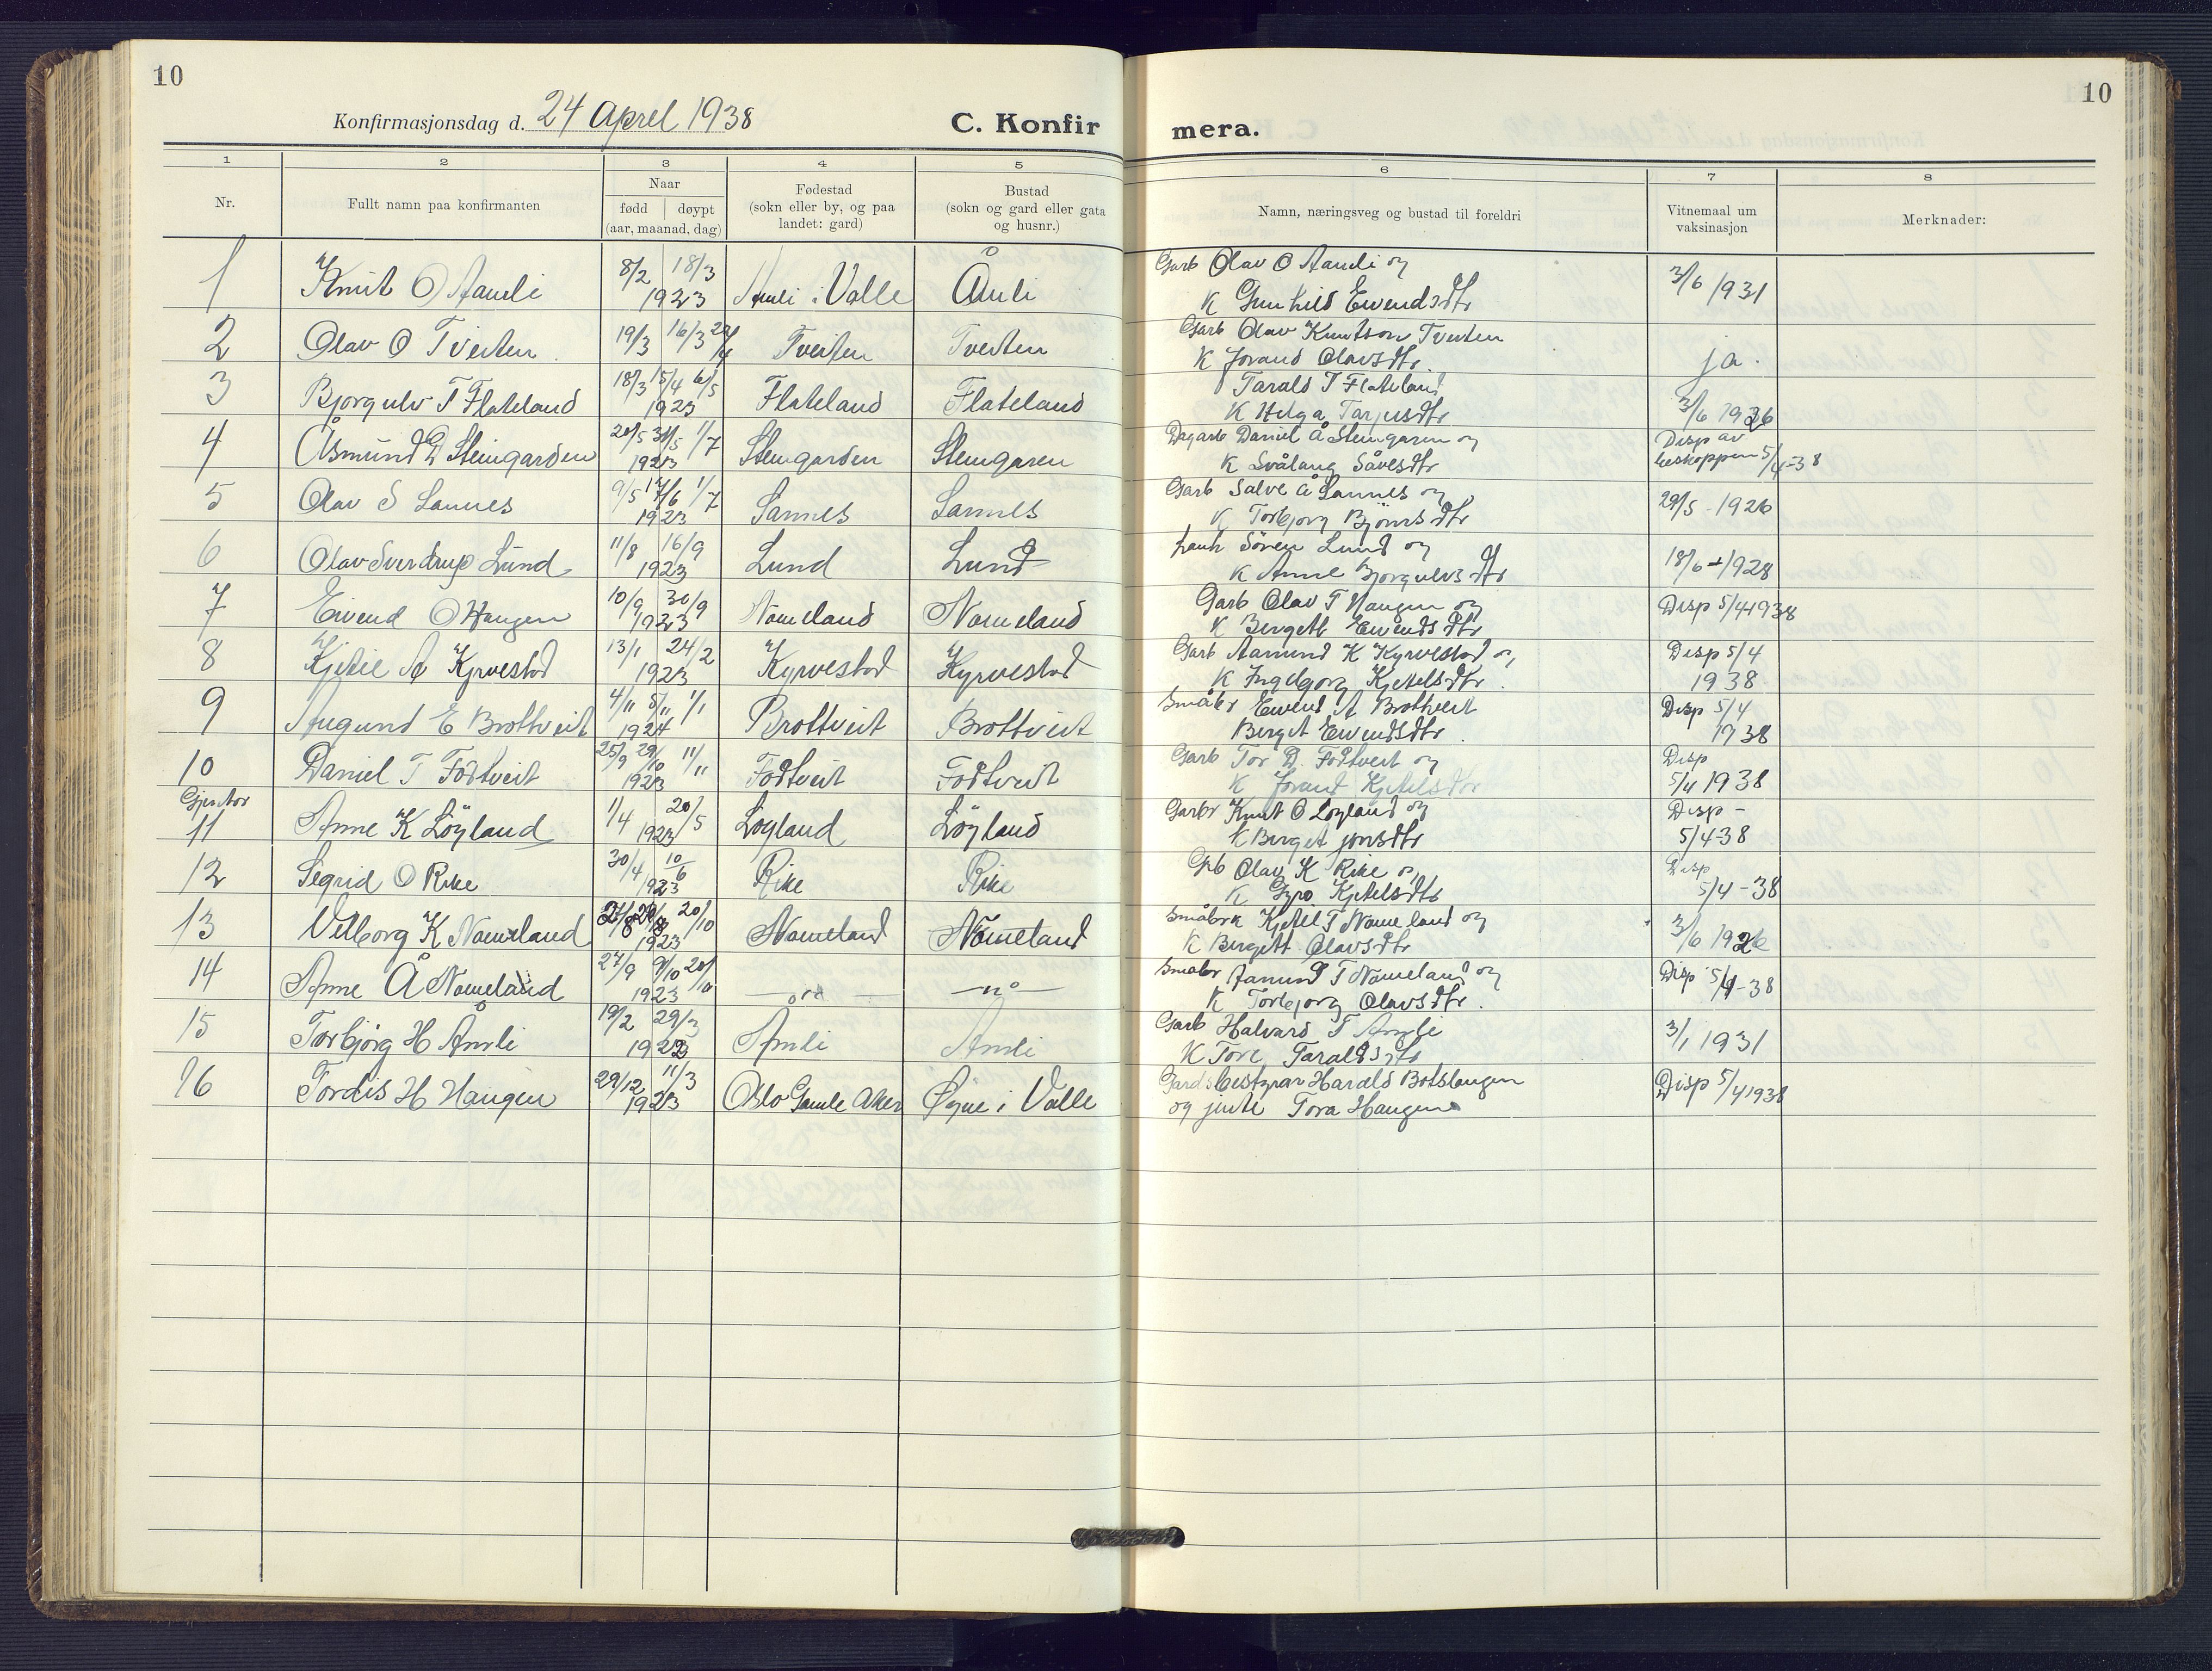 10
10
Konfirmasjonsdag d. 24 Aprel 1938
C. Konfir
mera.
1 2 3 4 5 6 7 8
Nr.
Fullt namn paa konfirmanten
Naar
fødd døypt
(aar, maanad, dag)
Fødestad
(sokn eller by, og paa
landet: gard)
Bustad
(sokn og gard eller gata
og husnr.)
Namn, næringsveg og bustad til foreldri
Vitnemaal um
vaksinasjon
Merknader:
1 Knut O Aamli 8/2 18/3 1923 Amli i Valle Åmli Garb Olav O Aamli og
K Gunhild Eivendsdtr 3/6 1931
2 Olav O Tveiten 19/3 16/3 Tveiten Tveiten Garb Olav Knutson Tveiten
K Jorand Olavsdtr. ja.
3 Bjorgulv T Flateland 18/3 15/4 6/5 1923 Flateland Flateland Tarald T Flateland
K Helga Tarjusdtr 3/6 1926
4 Åsmund D Steingarden 20/5 31/5 1/7 1923 Steingarden Steingaren Dagarb Daniel Å Steingaren og
K Svålaug Såvesdtr Disp av
biskoppen 5/4-38
5 Olav S Sannes 9/5 17/6 1/7 1923 Sannes Sannes Garb Salve Å Sannes og
K Torbjorg Bjömsdtr 29/5 - 1926
6 Olav Sverdrup Lund 11/8 16/9 1923 Lund Lund Sören Lund og
K Anne Bjorgulvsdtr 18/6 1928
7 Eivend O Haugen 10/9 30/9 1923 Nomeland Nomeland Garb Olav T Haugen og
K Bergett Eivendsdtr Disp 5/4 1938
8 Kjetil A Kyrvestad 13/1 24/2 1923 Kyrvestad Kyrvestad Garb Aamund K Kyrvestad og
K Ingeborg Kjetelsdtr. Disp 5/4
1938
9 Augund E Brottveit 4/11 5/11 1/1 1924 Brottveit Brottveit Småbr Eivend A Brottveit
Berget Eivendsdtr. Disp 5/4
1938
10 Daniel T Födtveit 25/9 29/10 11/11 1923 Fodtveit Fodtveit Garb Tor D. Fodtveit og
K Jorand Kjetelsdtr Disp
5/4 1938
Gjentor
11 Anne K Löyland 1/4 20/5 1923 Loyland Löyland Garbr Knut O Loyland og
K Berget Jonsdtr Disp -
5/4-38
12 Segrid O Rike 30/4 10/6 1923 Rike Rike Grb Olav K Rike og
K Gyro Kjetelsdtr Disp
5/4 - 38
13 Vilborg K Nomeland 20/10 1923 Nomeland Nomeland Småbrk Kjetel T Nomeland og
K Bergett Olavsdtr 3/6 1926
14 Anne Å Nomeland 27/9 9/10 1923 Småbr Aamund T Nomeland og
K Torbjorg Olavsdtr. Disp 5/4-38
15 Torbjörg H Åmli 19/2 29/3 1923 Amli Amli Garb Halvard T Amli
K Tore Taraldsdtr 3/1 1931
16 Tordis H Haugen 29/12 11/3 1923 Oslo Gamle Aker Øyne i Valle Gardsbestyrar Harald Botslangen
og jente Tora Haugen Disp 5/4 1938